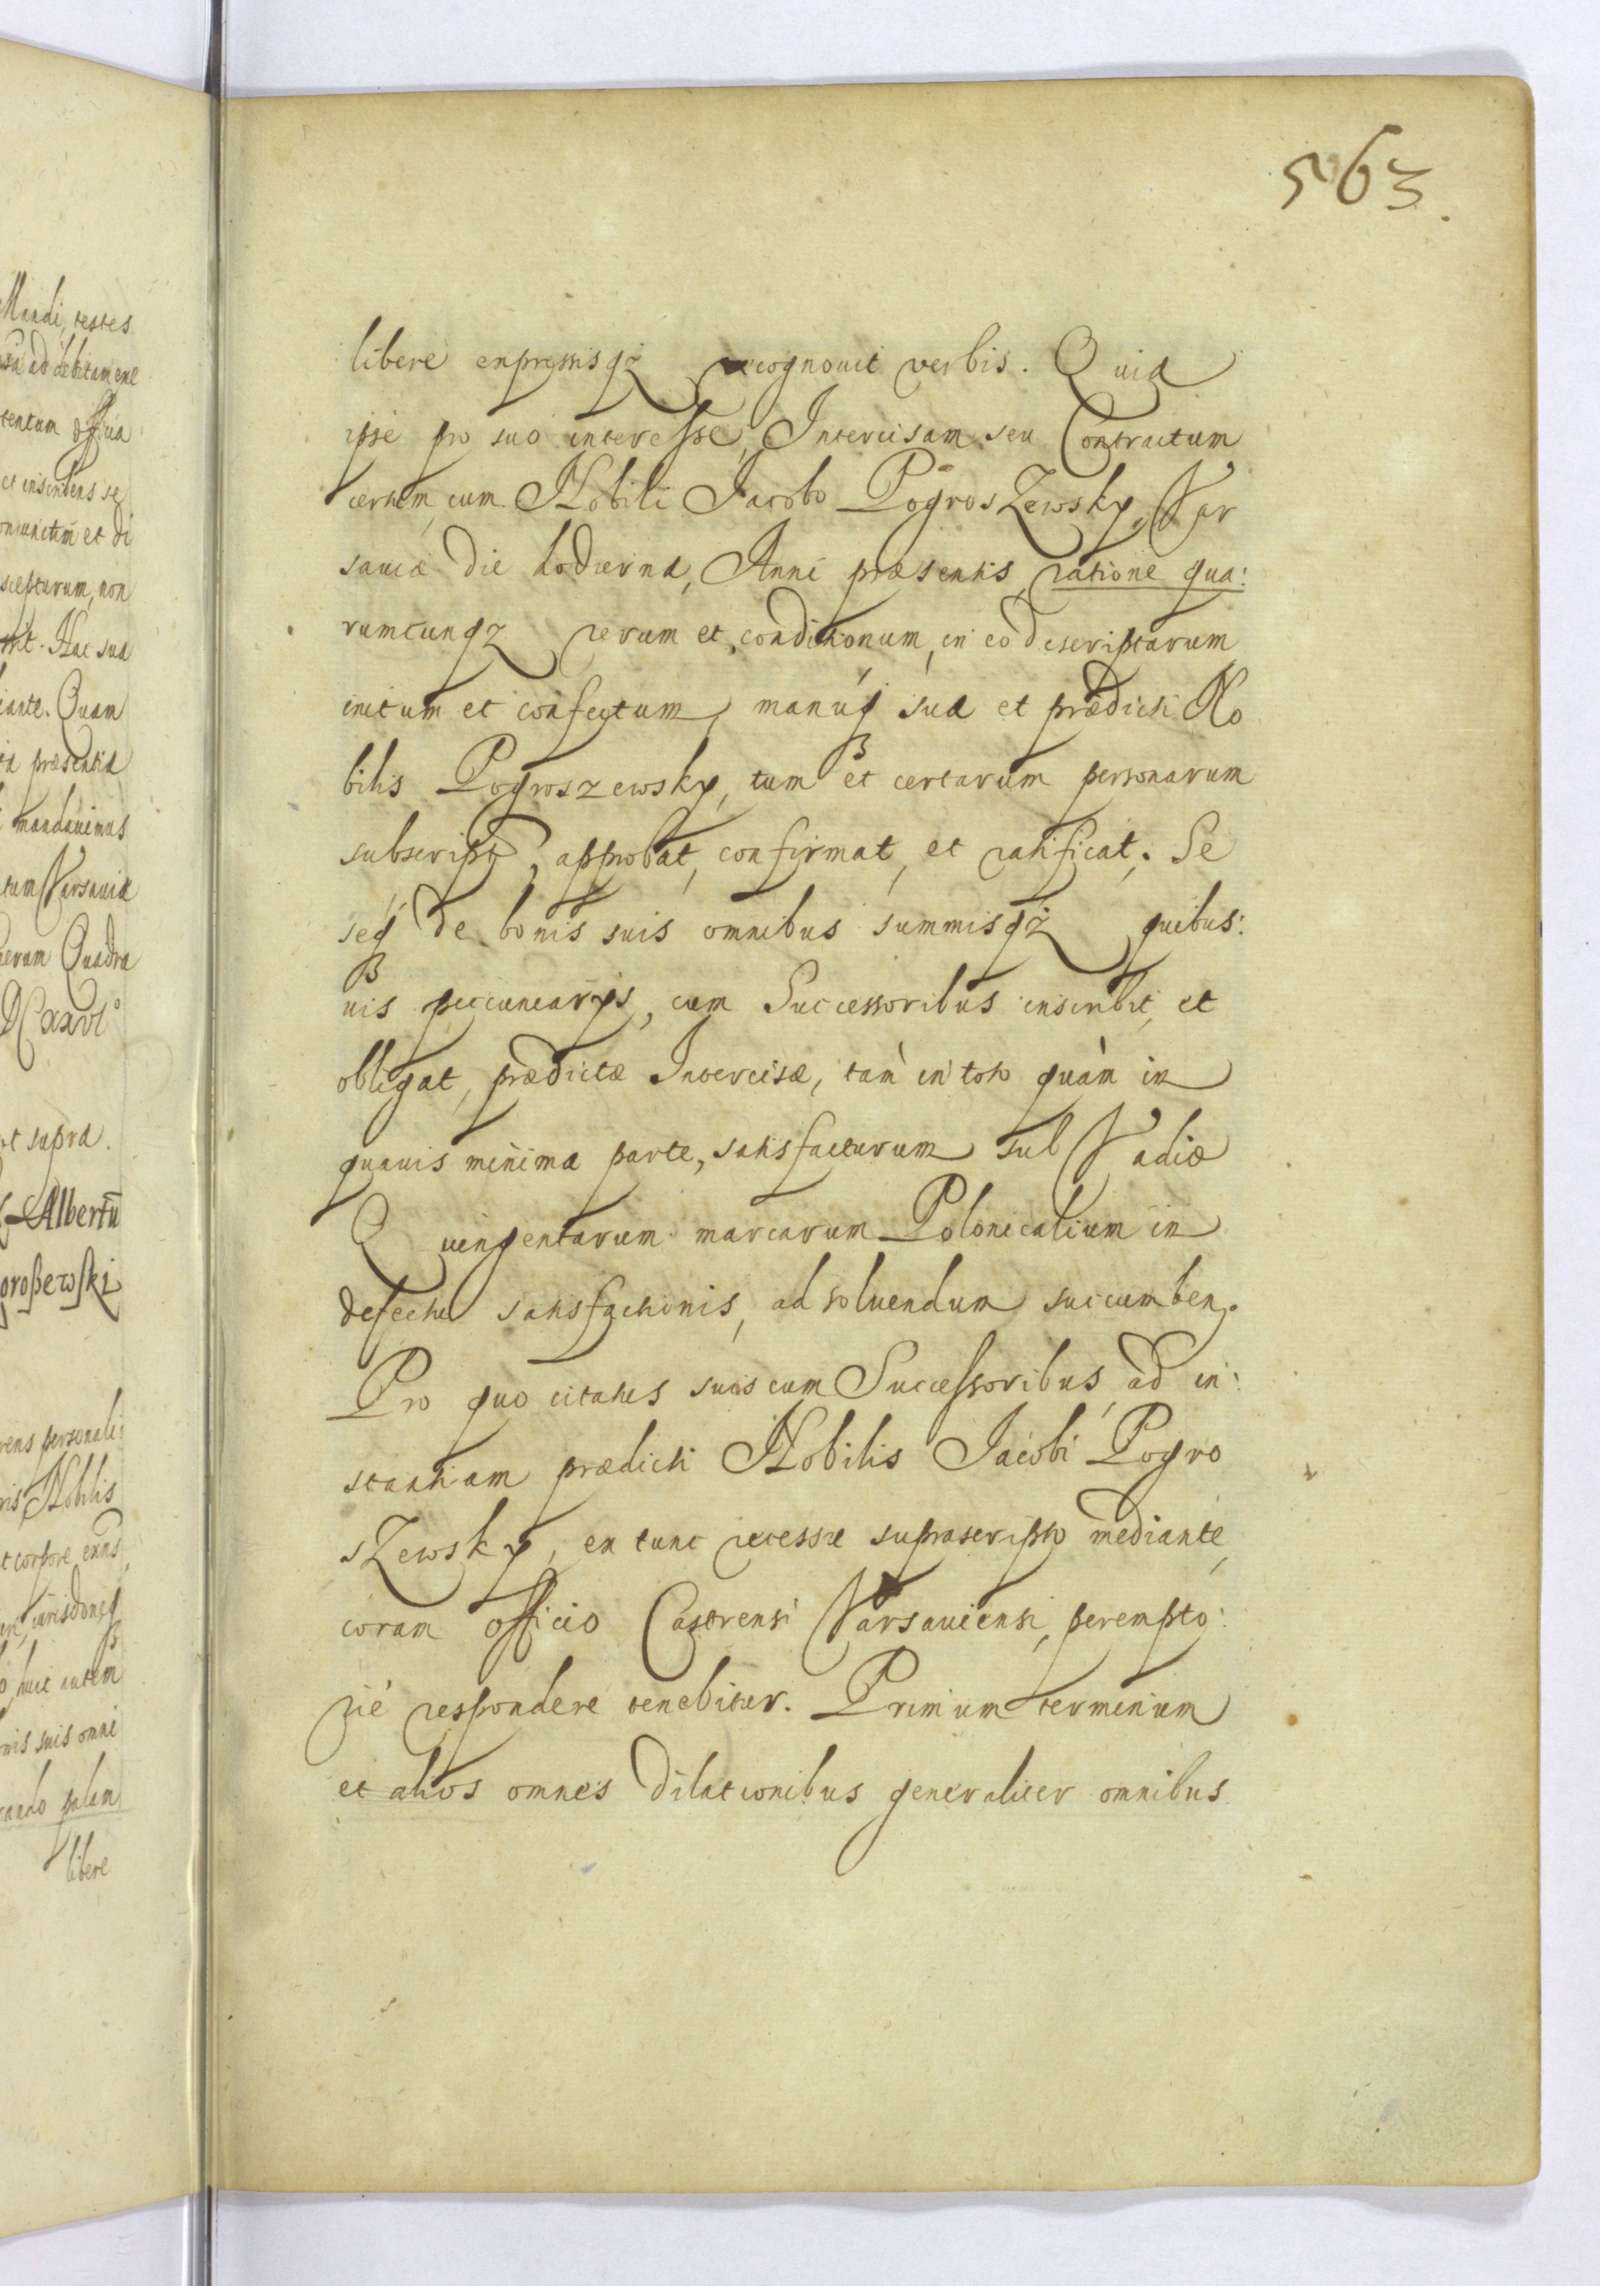 563.
libere expressisqz recognouit verbis. Quia
ipse pro suo interesse, Intercisam seu Contractum
certum, cum Nobili Jacobo PogrosZewsky, Var
sauiæ die hodierna, Anni præsentis, ratione qua:
rumcunqz rerum et conditionum, in eo descriptarum
initum et confectum, manuq sua et prædicti No
bilis Pogroszewsky, tum et certarum personarum
subscript, approbat, confirmat, et ratificat. Se
seq de bonis suis omnibus summisqz quibus:
uis pecuniarys, cum Successoribus inscribit, et
obligat, prædictæ Intercisæ, tam in toto quàm in
quauis minima parte, satisfacturum sub Vadio
Quingentarum marcarum Polonicalium in
defectu satisfactionis, ad soluendum succumben.
Pro quo citatus suis cum Successoribus, ad in:
stantiam prædicti Nobilis Jacobi Pogro
sZewsky, ex tunc recessu suprascripto mediante,
coram officio Castrensi Varsauiensi, perempto:
rie respondere tenebitur. Primum terminum
et alios omnes dilationibus generaliter omnibus
Mandi, testes
ad debitam exe
tentum officia
et inscribens se
coniunctam et di
scepturum, non
Hac sua
iante. Quam
præsentia
mandauimus
tum Varsauiæ
Quadra
t supra.
Albertu
groszewski
rens personali:
ris Nobilis
t corpore exns,
huic autem
nis suis omni
rando palam
libere